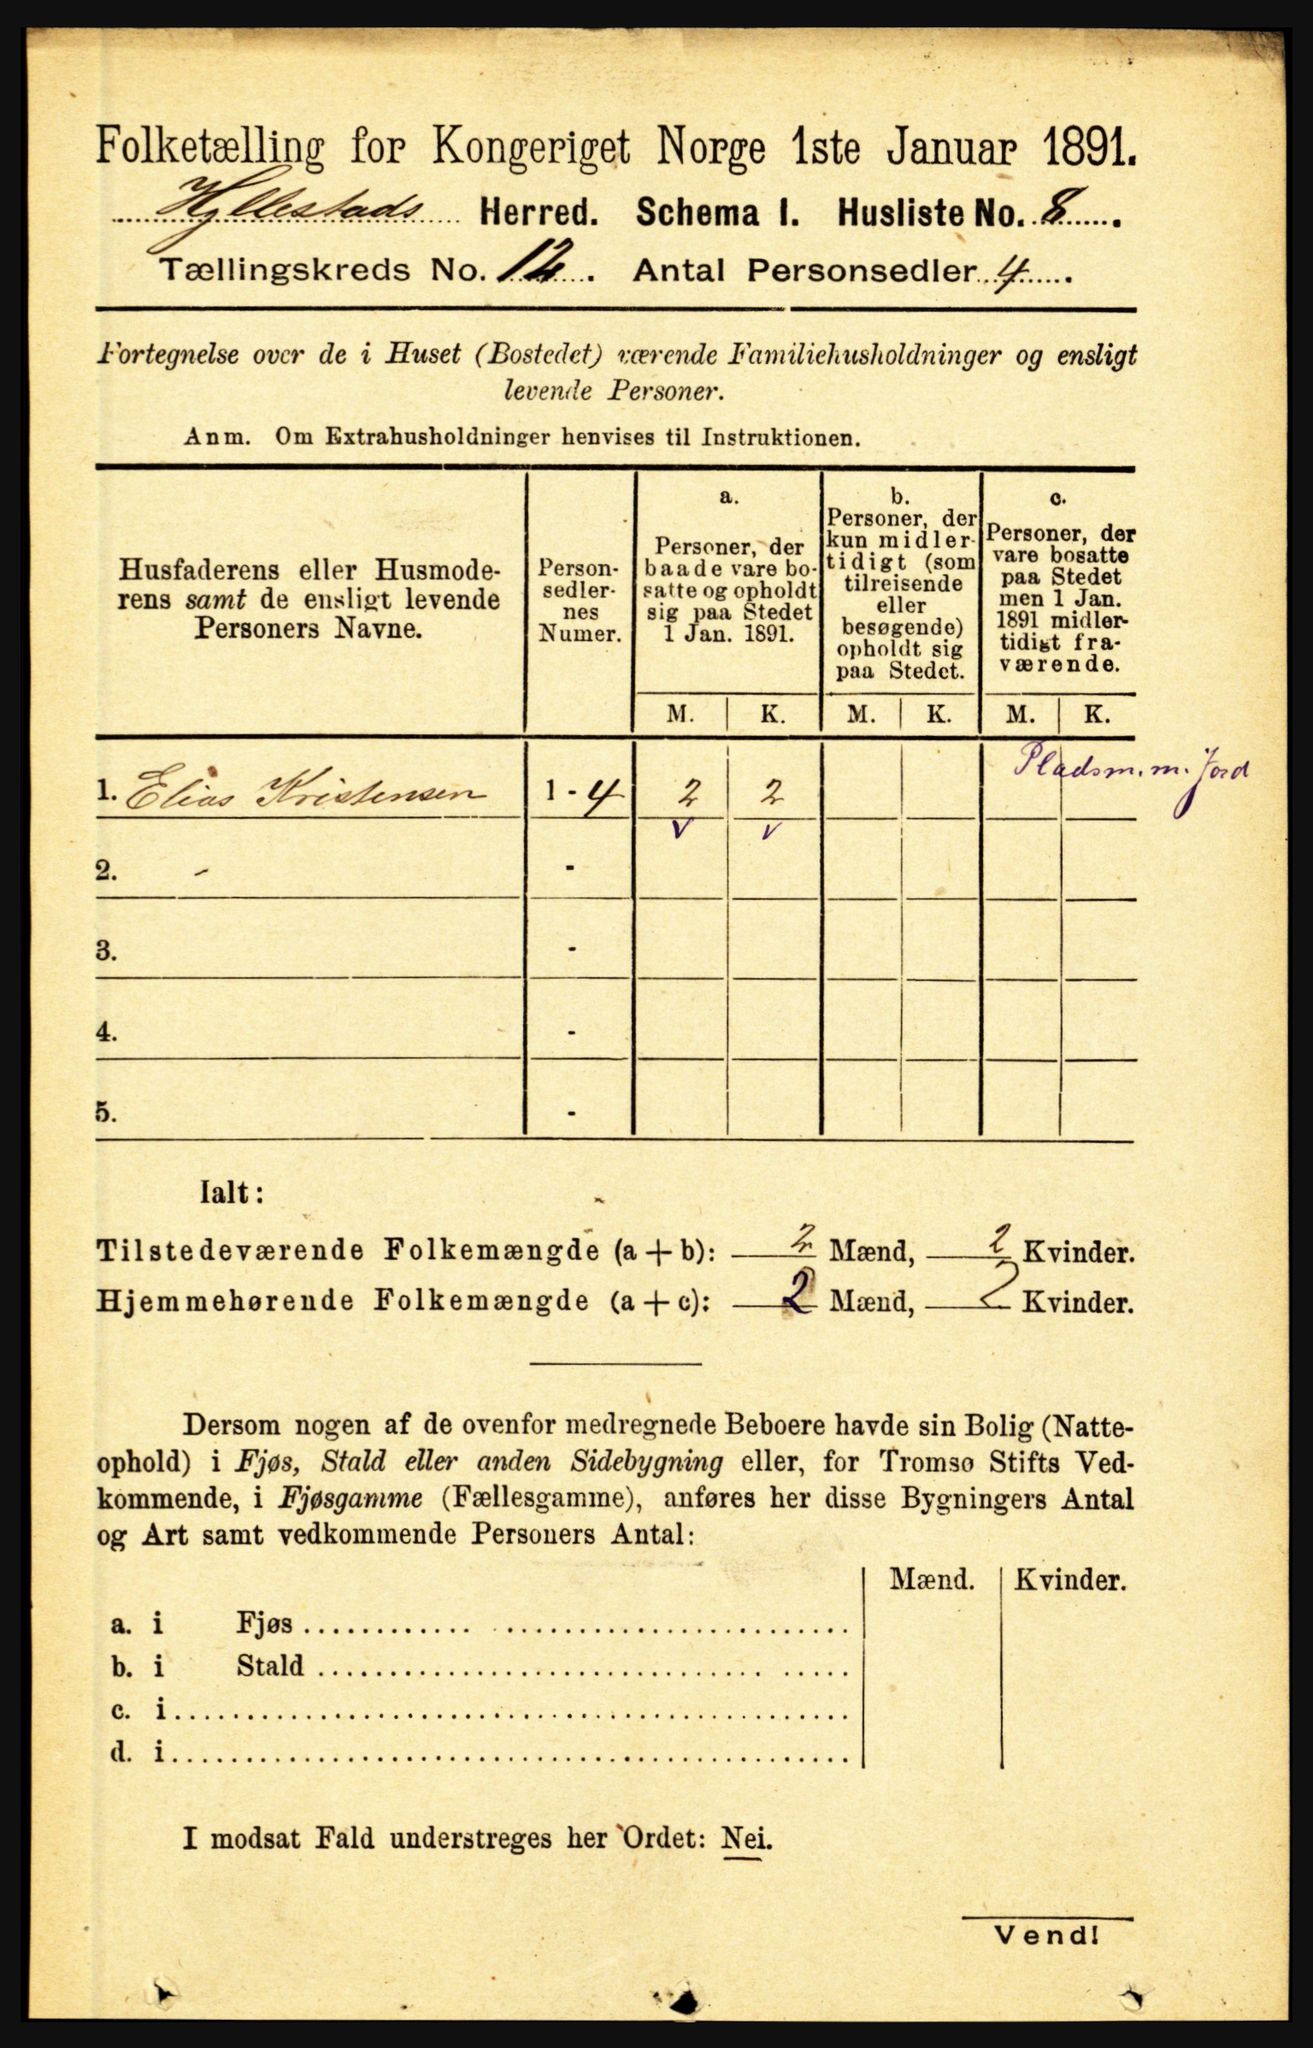 Folketælling for Kongeriget Norge 1ste Januar 1891.
Hyllestads Herred. Schema I. Husliste No. 8.
Tællingskreds No. 12. Antal Personsedler 4.
Fortegnelse over de i Huset (Bostedet) værende Familiehusholdninger og ensligt
levende Personer.
Anm. Om Extrahusholdninger henvises til Instruktionen.
Husfaderens eller Husmode-
rens samt de ensligt levende
Personers Navne.
Person-
sedler-
nes
Numer.
a.
Personer, der
baade vare bo-
satte og opholdt
sig paa Stedet
1 Jan. 1891.
b.
Personer, der
kun midler-
tidigt (som
tilreisende
eller
besøgende)
opholdt sig
paa Stedet.
c.
Personer, der
vare bosatte
paa Stedet
men 1 Jan.
1891 midler-
tidigt fra-
værende.
M. K. M. K. M. K.
Pladsm. m. Jord
1. Elias Kristensen 1 - 4 2 2
v v
2. - -
3. -
4. -
5. -
Ialt:
Tilstedeværende Folkemængde (a + b): 2 Mænd, 2 Kvinder.
Hjemmehørende Folkemængde (a + c): 2 Mænd, 2 Kvinder.
Dersom nogen af de ovenfor medregnede Beboere havde sin Bolig (Natte-
ophold) i Fjøs, Stald eller anden Sidebygning eller, for Tromsø Stifts Ved-
kommende, i Fjøsgamme (Fællesgamme), anføres her disse Bygningers Antal
og Art samt vedkommende Personers Antal:
Mænd. Kvinder.
a. i Fjøs
b. i Stald
c. i
d. i
I modsat Fald understreges her Ordet: Nei.
Vend!